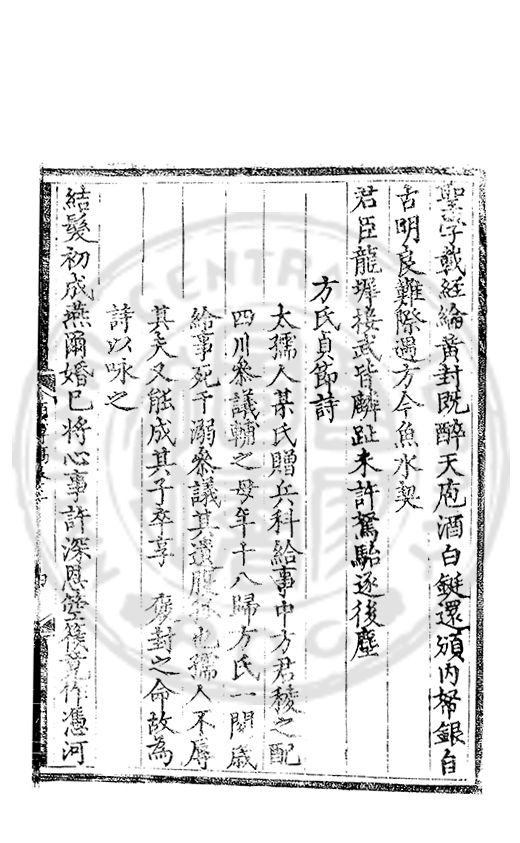 聖字載經綸黃封既醉天庖酒白鋌還頒內帑銀自
古明良難際遇方今魚水契
君臣龍墀接武皆麟趾未許駑駘逐後塵
方氏貞節詩
太孺人某氏贈兵科給事中方君稜之配
四川參議輔之母年十八歸方氏一閱歲
給事死于溺參議其遺腹也孺人不辱
其夫又能成其子卒享 褒封之命故為
詩以咏之
結髮初成燕爾婚已將心事許深恩箜篌竟作憑河